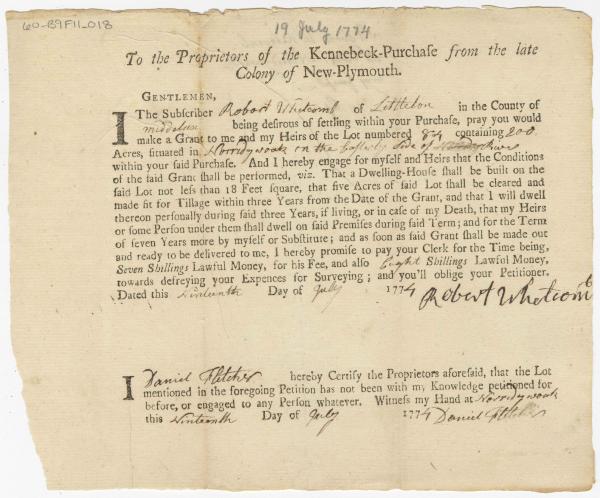 60-B9F11_018
19 July 1774
To the Proprietors of the Kennebeck-Purchase from the late
Colony of New-Plymouth.
GENTLEMEN,
I The Subscriber Robert Whetcomb of Littelon in the County of
middelsex being desirous of settling within your Purchase, pray you would
make a Grant to me and my Heirs of the Lot numbered 84 containing 200
Acres, situated in Norridywoak on the Easterly Side of River
within your said Purchase. And I hereby engage for myself and Heirs that the Conditions
of the said Grant shall be performed, viz. That a Dwelling-House shall be built on the
said Lot not less than 18 Feet square, that five Acres of said Lot shall be cleared and
made fit for Tillage within three Years from the Date of the Grant, and that I will dwell
thereon personally during said three Years, if living, or in case of my Death, that my Heirs
or some Person under them shall dwell on said Premises during said Term; and for the Term
of seven Years more by myself or Substitute; and as soon as said Grant shall be made out
and ready to be delivered to me, I hereby promise to pay your Clerk for the Time being,
Seven Shillings Lawful Money, for his Fee, and also Eight Shillings Lawful Money,
towards defreying your Expences for Surveying; and you'll oblige your Petitioner.
Dated this Ninteenth Day of July 1774 Robert Whetcomb
I Daniel Fletcher hereby Certify the Proprietors aforesaid, that the Lot
mentioned in the foregoing Petition has not been with my Knowledge petitioned for
before, or engaged to any Person whatever. Witness my Hand at Norridywoak
this Ninteenth Day of July 1774 Daniel Fletcher